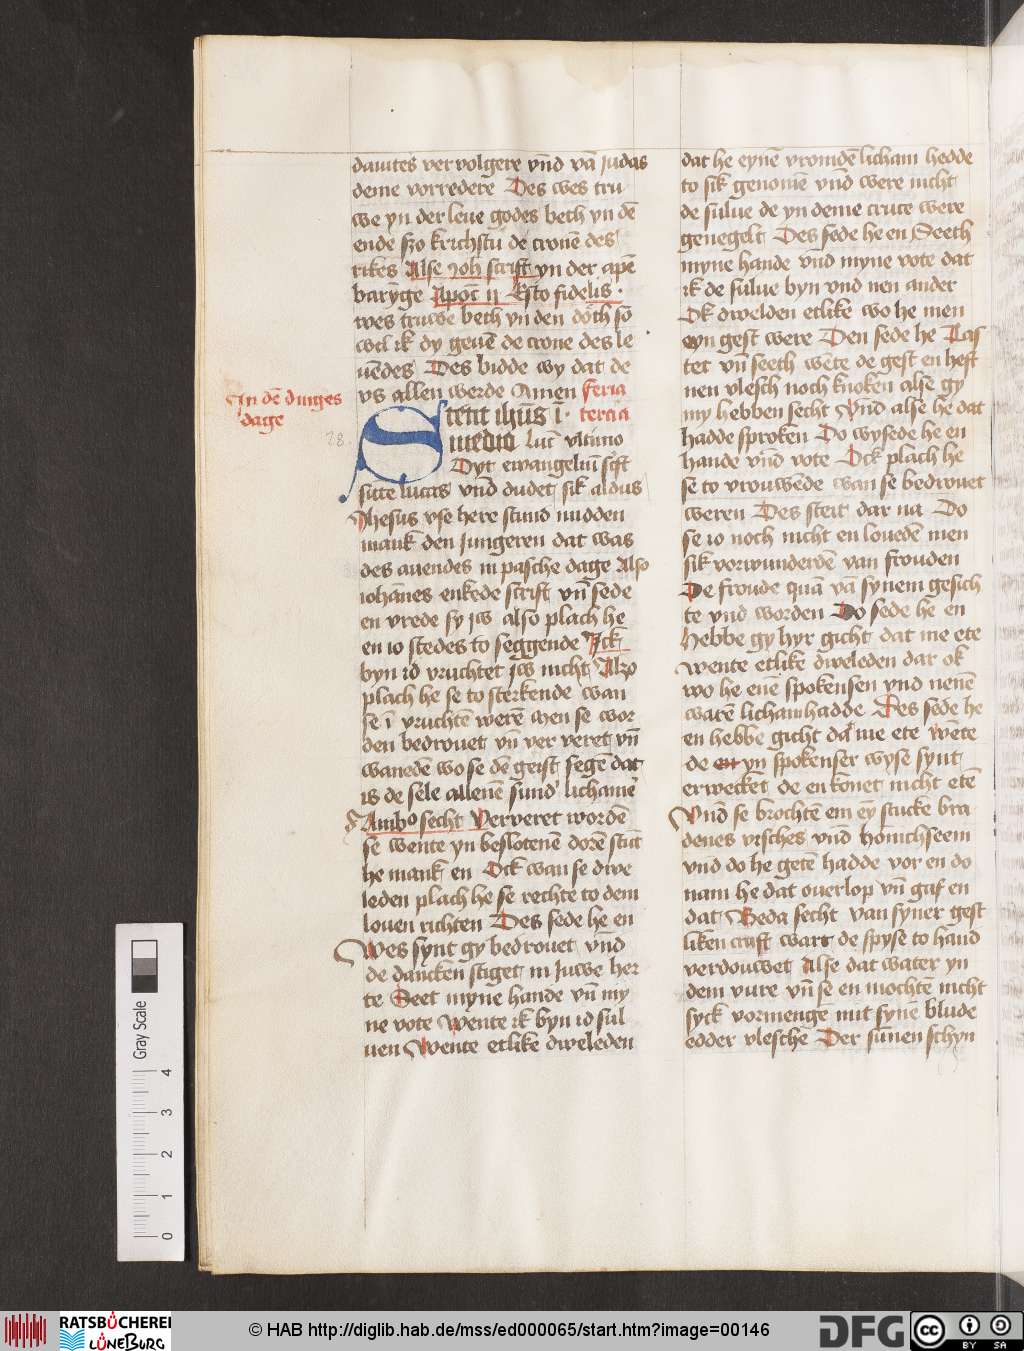 dauites vervolgere vnd vā judas
deme vorredere Des wes tru
we yn der leue godes beth yn dē
ende szo krichstu de cronē des
rikes Alse joh scrift yn der apē
barynge Apoc ij Esto fidelis
wes truwe beth yn den doth so
wil ik dy geuē de crone des le
uēdes Des bidde wy dat de
vs allen werde Amen feria
tercia
In dē dinges
dage
Stetit ihūs ī
medio luc vltimo
Dyt ewangeliū
sitte lucas vnd dudet sik aldus
Jhesus vse here stund midden
mank den Jungeren dat was
des auendes in pasche dage Also
iohānes enkede scrift vn̄ sede
en vrede sy jw also plach he
en io stedes to seggende Ick
byn id vruchtet jw nicht Also
plach he se to sterkende wan
se ī vruchtē werē wen se wor
den bedrouet vn̄ ver veret vn̄
wanedē wo se dē geist segē dat
is de sele allenē sund' lichamē
Ambo secht Ververet wordē
se wente yn beslotenē dorē stūt
he mank en Ock wan se dwe
leden plach he se rechte to dem
louen richten Des sede he en
Wes synt gy bedrouet vnd
de dancken stiget in juwe her
te Seet myne hande vn̄ my
ne vote Wente ik byn id sul
uen Wente etlike dweleden
dat he eynē vromdē licham hedde
to sik genomē vnd were nicht
de sulue de yn deme cruce were
genegelt Des sede he en Seeth
myne hande vnd myne vote dat
ik de sulue byn vnd nen ander
Ok dwelden etlike wo he men
eyn gest were Den sede he Tas
tet vn̄ seeth wēte de gest en heft
nen vlesch noch knoken alse gy
my hebben secht Vnd alse he dat
hadde sproken Do wysede he en
hande vnd vote Ock plach he
se to vrouwēde wan se bedrouet
weren Des steit dar na Do
se io noch nicht en louedē men
sik vorwunderdē van frouden
De froude quā vā synem gesich
te vnd worden Do sede he en
Hebbe gy hyr gicht dat me ete
Wente etlike dweleden dar ok
wo he enē spokensen vnd nenē
warē licham hadde Des sede he
en hebbe gicht dat me ete Wēte
de en yn spokenser wyse synt
erwecket de en konet nicht etē
Vnd se brochtē em ey stucke bra
denes visches vnd honnichseem
vnd do he getē hadde vor en do
nam he dat ouerlop vn̄ gaf en
dat Beda secht van syner gest
liken craft wart de spyse to hand
verdouwet Alse dat water yn
dem vure vn̄ se en mochtē nicht
syck vormengē mit synē blude
edder vlesche Der sunnen schyn
28.
Gray Scale
4
3
2
1
0
RATSBÜCHEREI
LÜNEBURG
© HAB http://diglib.hab.de/mss/ed000065/start.htm?image=00146
DFG
cc
BY SA